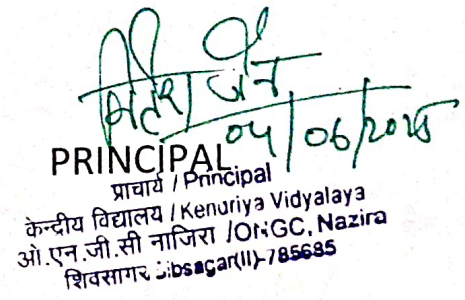 जैन
04/06/2025
PRINCIPAL
प्राचार्य / Principal
केन्द्रीय विद्यालय / Kendriya Vidyalaya
ओ.एन.जी.सी नाजिरा /ONGC, Nazira
शिवसागर Sibsagar(II)-785685